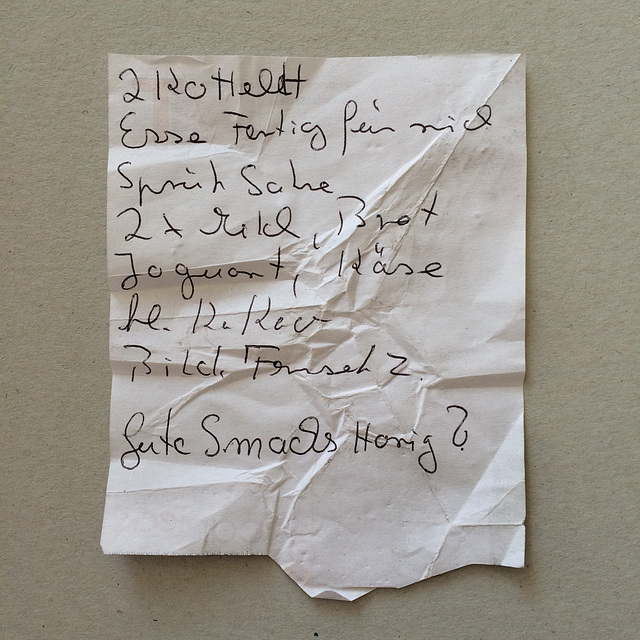 2 Kottelett
Esse Fertig für mich
Sprüh Sahne
2 x Milch, Brot
Joguart, Käse
kl. Kakao
Bild Fernseh Z.
gute Smacks Honig ?